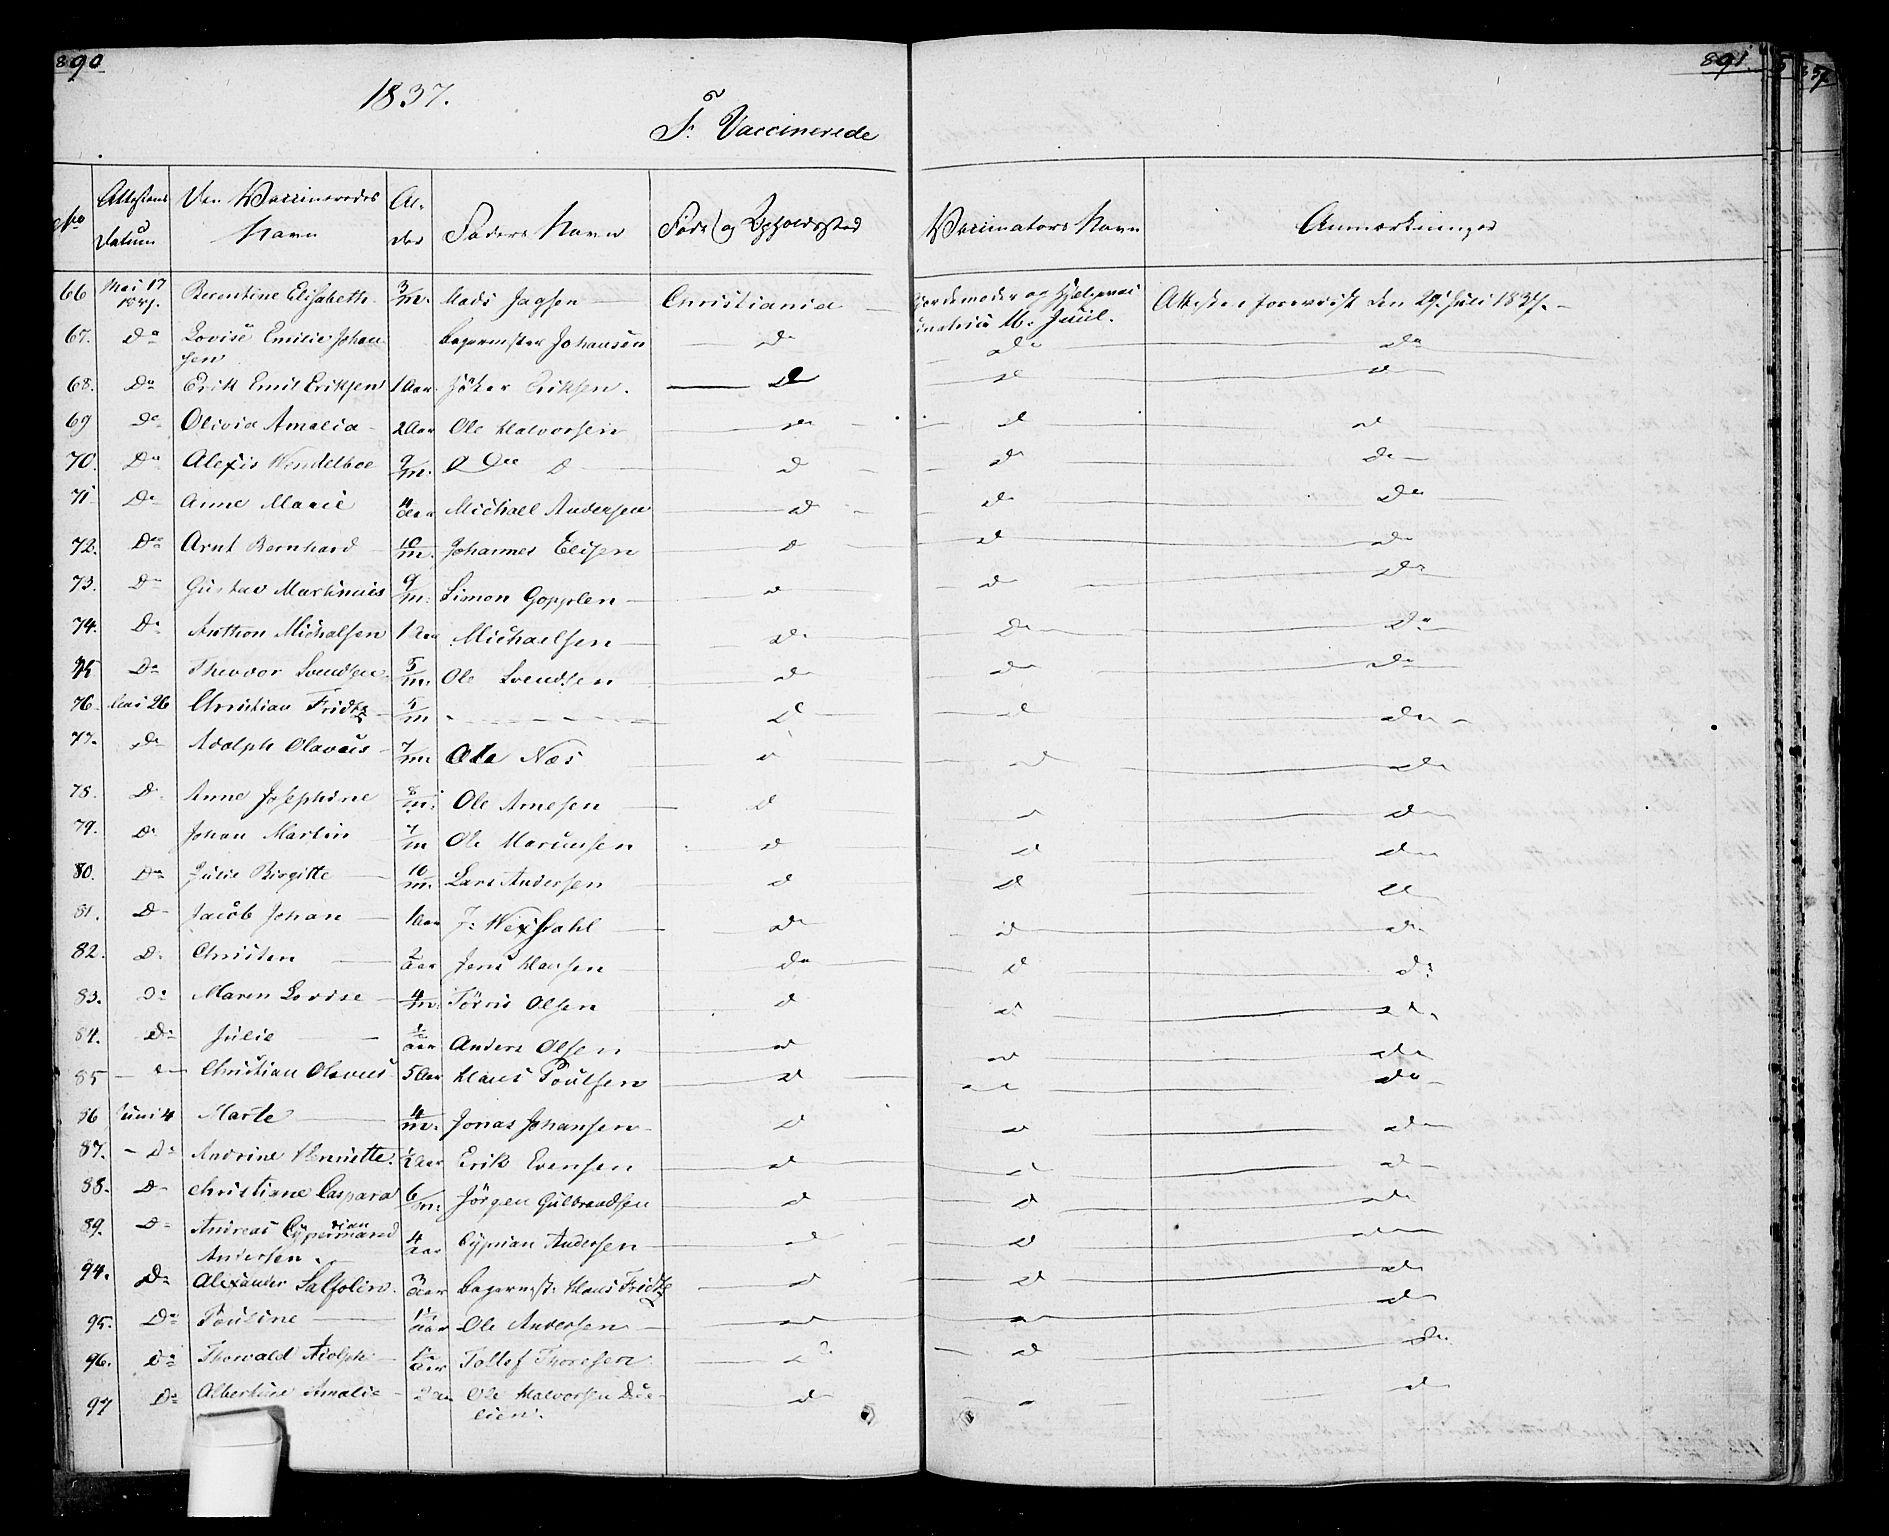 890
891
1837.
F. Vaccinerede
No Attestens Datum Den Vaccineredes Navn Alder Faders Navn Føde og Opholdssted Vaccinators Navn Anmærkninger
66 Mai 17 1837. Berentine Elisabeth 3/m. Mads Jagsen Christiania Jordemoder og Hjelpevaccinatrice M. Juul. Attesten foreviist den 29 Juli 1837.
67. Do Lovise Emilie Johansen Bagermester Johansen Do Do Do
68. Do Erik Emil Eriksen 1 Aar Höker Eriksen. D D D
69 Do Olivia Amalia 2 Aar Ole Halvorsen D D D
70. Do Alexis Wendelboe 9/m. D Do D D D Do
71 Do Anne Marie 4 Aar Michael Andersen D Do Do
72. Do Arnt Bernhard 10/m. Johannes Elisen D D Do
73. Do Gustav Martinius 9/m. Simon Gopplen D D Do
74. Do Anthon Michalsen 1 Aar Michaelsen Do Do Do
75 Do Theodor Svendsen 5/m. Ole Svendsen Do Do Do
76. Mai 26 Christian Fridtz 5/m D D Do
77. Do Adolph Olavus 7/m. Ole Næs D D Do
78. D Anne Josephine 8/m. Ole Arnesen D D Do
79. Do Johan Martin 7/m Ole Mariusen D D Do
80. Do Julie Birgitte 10/m. Lars Andersen D D D
81. D Jacob Johan 1 Aar J: Wexsahl Do D Do
82. D Christen 2 Aar Jens Hansen Do D Do
83. Do Maren Lovise 4/m. Törris Olsen D D Do
84. Do Julie Aar Anders Olsen D D Do
85 Christian Olavus 5 Aar Hans Poulsen D D Do
86 Juni 4 Marte 4/m. Jonas Johansen D D Do
87. Do Andrine Henriette 1/2 Aar Erik Evensen D D D
88. D Christiane Caspara 6/m. Jörgen Gulbrandsen D D Do
89. D Andreas Andersen. 4 Aar Cyprian Andersen D D D
94. Do Alexander 3 Aar Bagermst: Hans Fridtz D D Do
95. Do Pouline Aar Ole Andersen D D Do
96. Do Thorwald Adolph Aar Tollef Thoresen D D Do
97 Do Amalie 2 Aar Ole Halvorsen D D